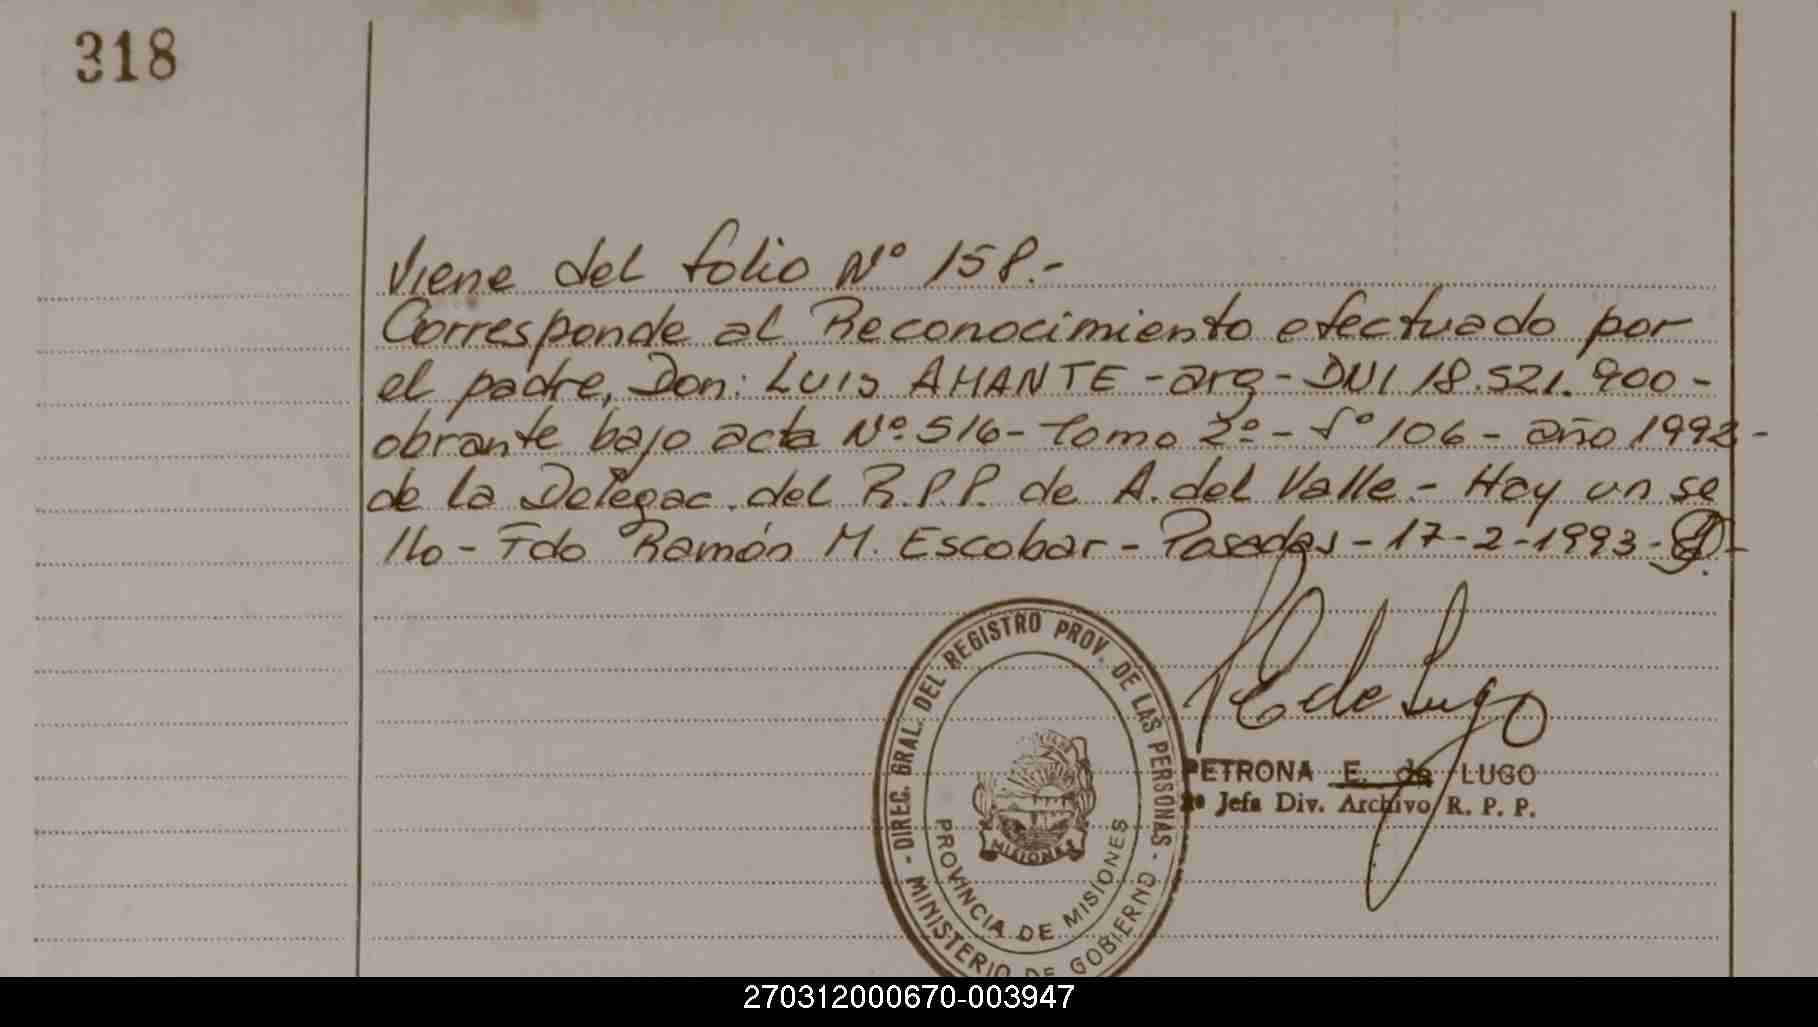 318
Viene del folio Nº 158.-
Corresponde al Reconocimiento efectuado por
el padre, Don: LUIS AMANTE - arg - DNI 18.521.900 -
obrante bajo acta Nº 516 - Tomo 2º - Fº 106 - año 1992 -
de la Delegac. del R.P.P. de A. del Valle - Hay un se
llo - Fdo Ramón M. Escobar - Posadas - 17-2-1993 -
P E de Lugo
PETRONA E. de LUGO
2º Jefa Div. Archivo R. P. P.
- DIREC. GRAL. DEL REGISTRO PROV. DE LAS PERSONAS -
MINISTERIO DE GOBIERNO
PROVINCIA DE MISIONES
MISIONES
270312000670-003947